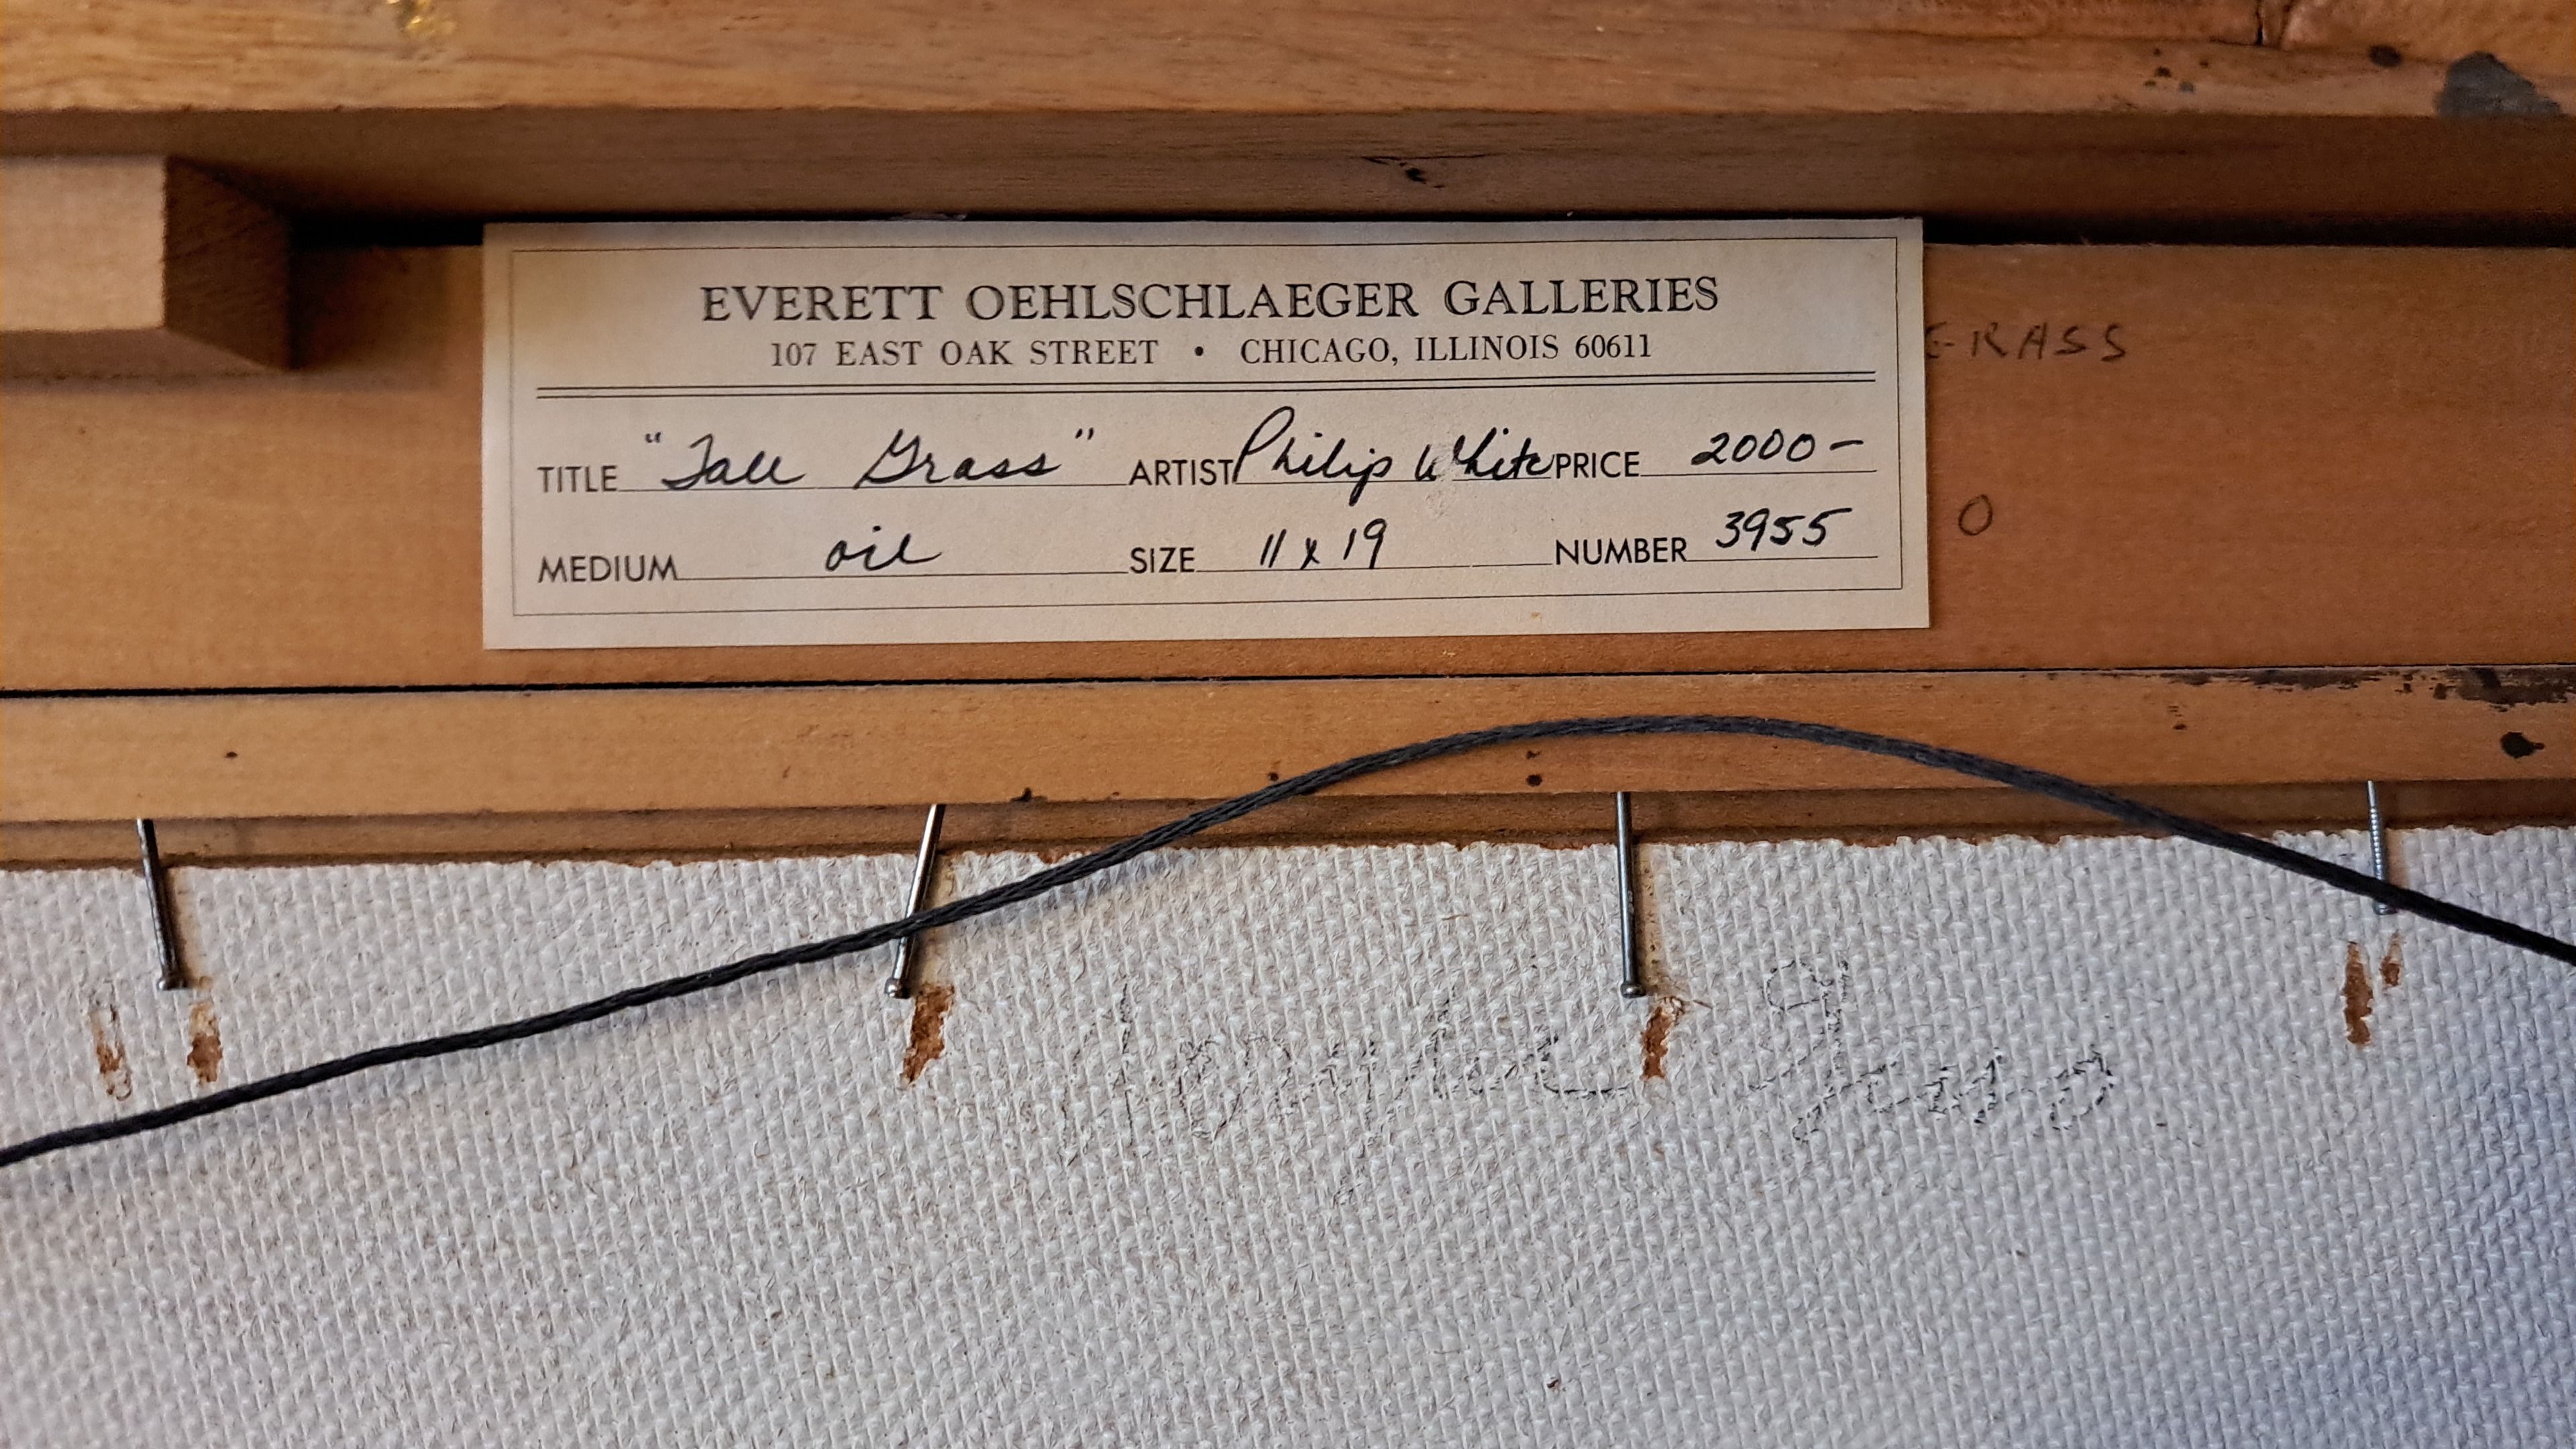 EVERETT OEHLSCHLAEGER GALLERIES
107 EAST OAK STREET • CHICAGO, ILLINOIS 60611
GRASS
TITLE "Tall Grass" ARTIST Philip White PRICE 2000–
MEDIUM oil SIZE 11 x 19 NUMBER 3955
O